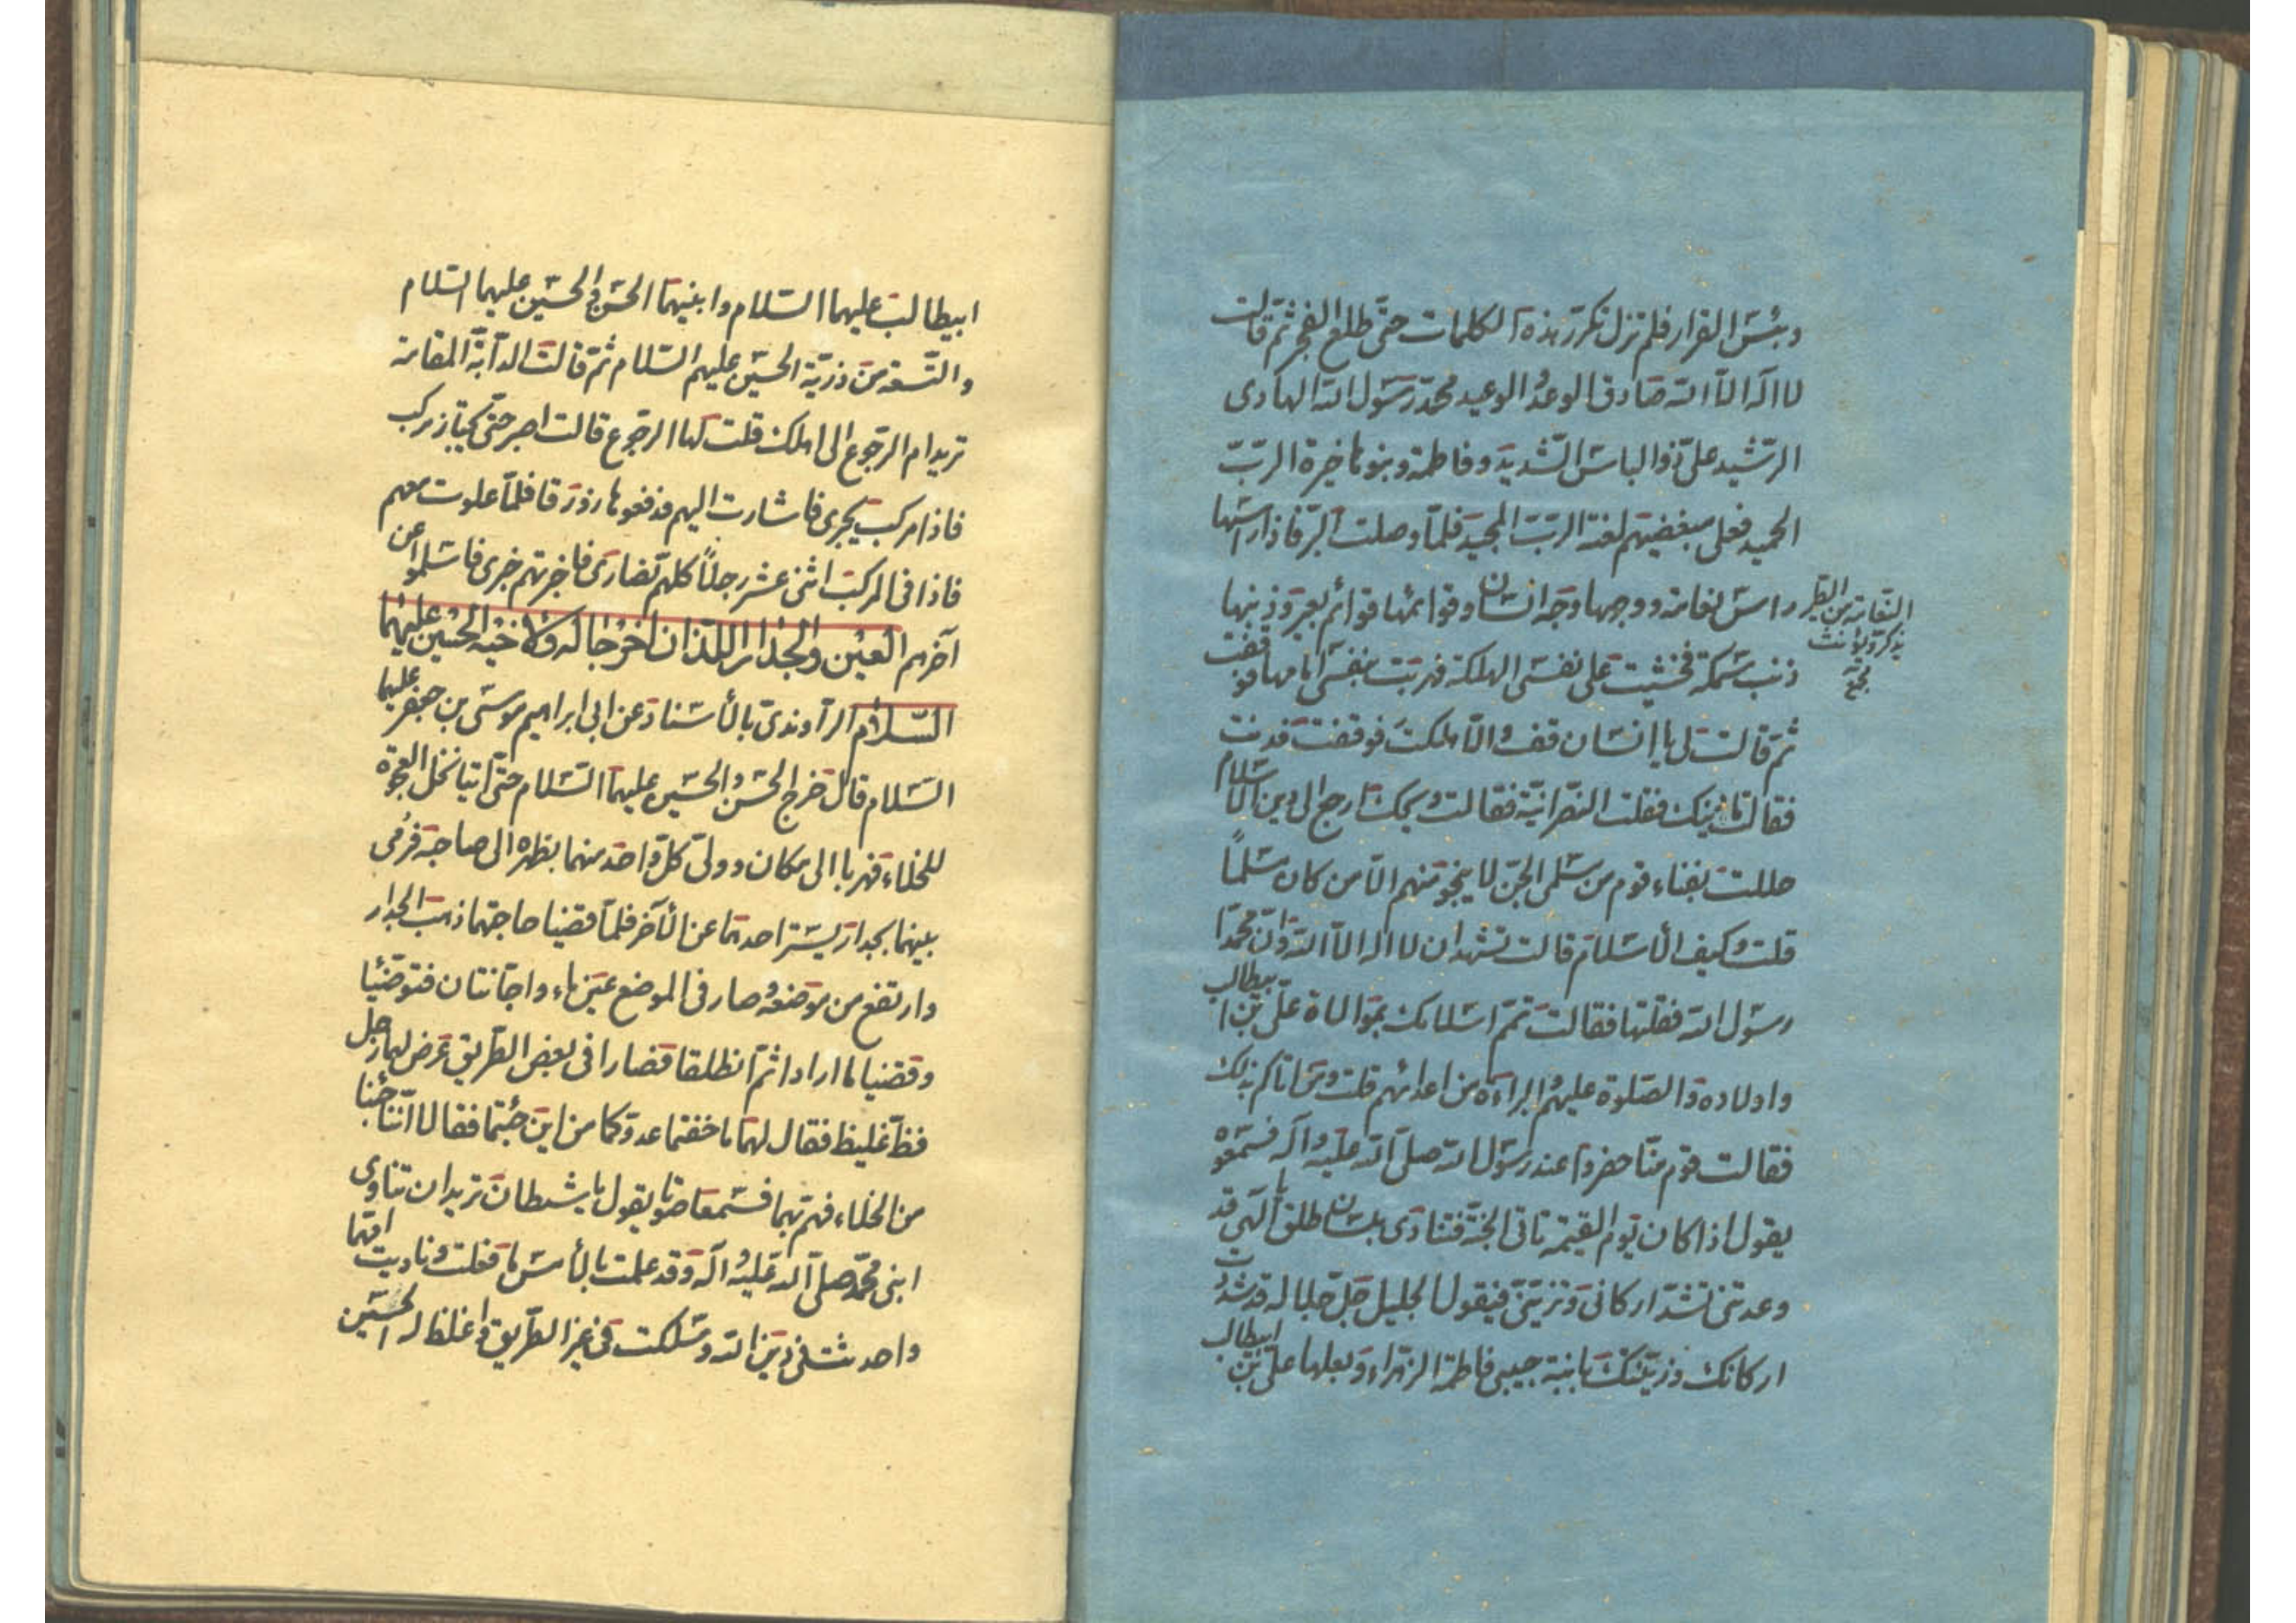 وبئس القرار فلم تزل تكرر هذه الكلمات حتّى طلع الفجر ثمّ قالت
لا اله الّا اللّه صادق الوعد والوعيد محمّد رسول اللّه الهادى
الرّشيد علىّ ذو الباس الشّديد وفاطمة وبنوها خيرة الربّ
الحميد فعلى مبغضيهم لعنة الربّ المجيد فلمّا وصلت البرّ فاذا راسها
راس نعامة ووجهها وجه انسان وقوائمها قوائم بعير وذنبها
النّعامة من الطّير
يذكّر ويؤنّث
مجمع
ذنب سمكة فخشيت على نفسى الهلكة فهربت بنفسى امامها فوقفت
ثمّ قالت لى يا انسان قف والّا هلكت فوقفت فدنت
فقالت ما دينك فقلت النصرانيّة فقالت ويحك ارجع الى دين الأسلام
حللت بفناء قوم من مسلمى الجنّ لا ينجو منهم الّا من كان مسلماً
قلت وكيف الأسلام قالت تشهد ان لا اله الّا اللّه وانّ محمّدا
رسول اللّه فقلتها فقالت تمّم اسلامك بموالاة علىّ بن ابيطالب
واولاده والصّلوة عليهم والبراءة من اعدائهم قلت ومن اتاكم بذلك
فقالت قوم منّا حضروا عند رسول اللّه صلّى اللّه عليه وآله فسمعوه
يقول اذا كان يوم القيمة تاتى الجنّة فتنادى بلسان طلق يا الهى قد
وعدتنى تشدّ اركانى وتزيّننى فيقول الجليل جلّ جلاله قد شددت
اركانك وزيّنتك بابنة حبيبى فاطمة الزهراء وبعلها علىّ بن ابيطالب
ابيطالب عليهما السّلام وابنيهما الحسن والحسين عليهما السّلام
والتّسعة من ذريّة الحسين عليهم السّلام ثمّ قالت الدآبّة المقامة
تريد ام الرّجوع الى اهلك قلت لها الرجوع قالت اصبر حتّى يجتاز مركب
فاذا مركب يجرى فاشارت اليهم فدفعوا لها زورقا فلمّا علوت معهم
فاذا فى المركب اثنى عشر رجلاً كلهم نصارى فاخبرتهم خبرى فاسلموا عن
آخرهم العين والجدار اللّذان اخرجا له ولاخيه الحسين عليهما
السّلام الرآوندىّ بالأسناد عن ابى ابراهيم موسى بن جعفر عليهما
السّلام قال خرج الحسن والحسين عليهما السّلام حتّى اتيا نخل العجوة
للخلاء فهربا الى مكان وولّى كلّ واحد منهما بظهره الى صاحبه فرمى
بينهما بجدار يستر احدهما عن الأخر فلمّا قضيا حاجتهما ذهب الجدار
وارتفع من موضعه وصار فى الموضع عين ماء واجّانتان فتوضّئيا
وقضيا ما ارادا ثمّ انطلقا فصارا فى بعض الطّريق عرض لهما رجل
فظّ غليظ فقال لهما ما خفتما عدوّكما من اين جئتما فقالا انّنا جئنا
من الخلاء فهمّ بهما فسمعا صوتا يقول يا شيطان تريد ان تناوى
ابنى محمّد صلّى اللّه عليه وآله وقد علمت بالأمس ما فعلت وناديت امّهما
واحدثت فى دين اللّه وسلكت فى غير الطّريق واغلظ له الحسين